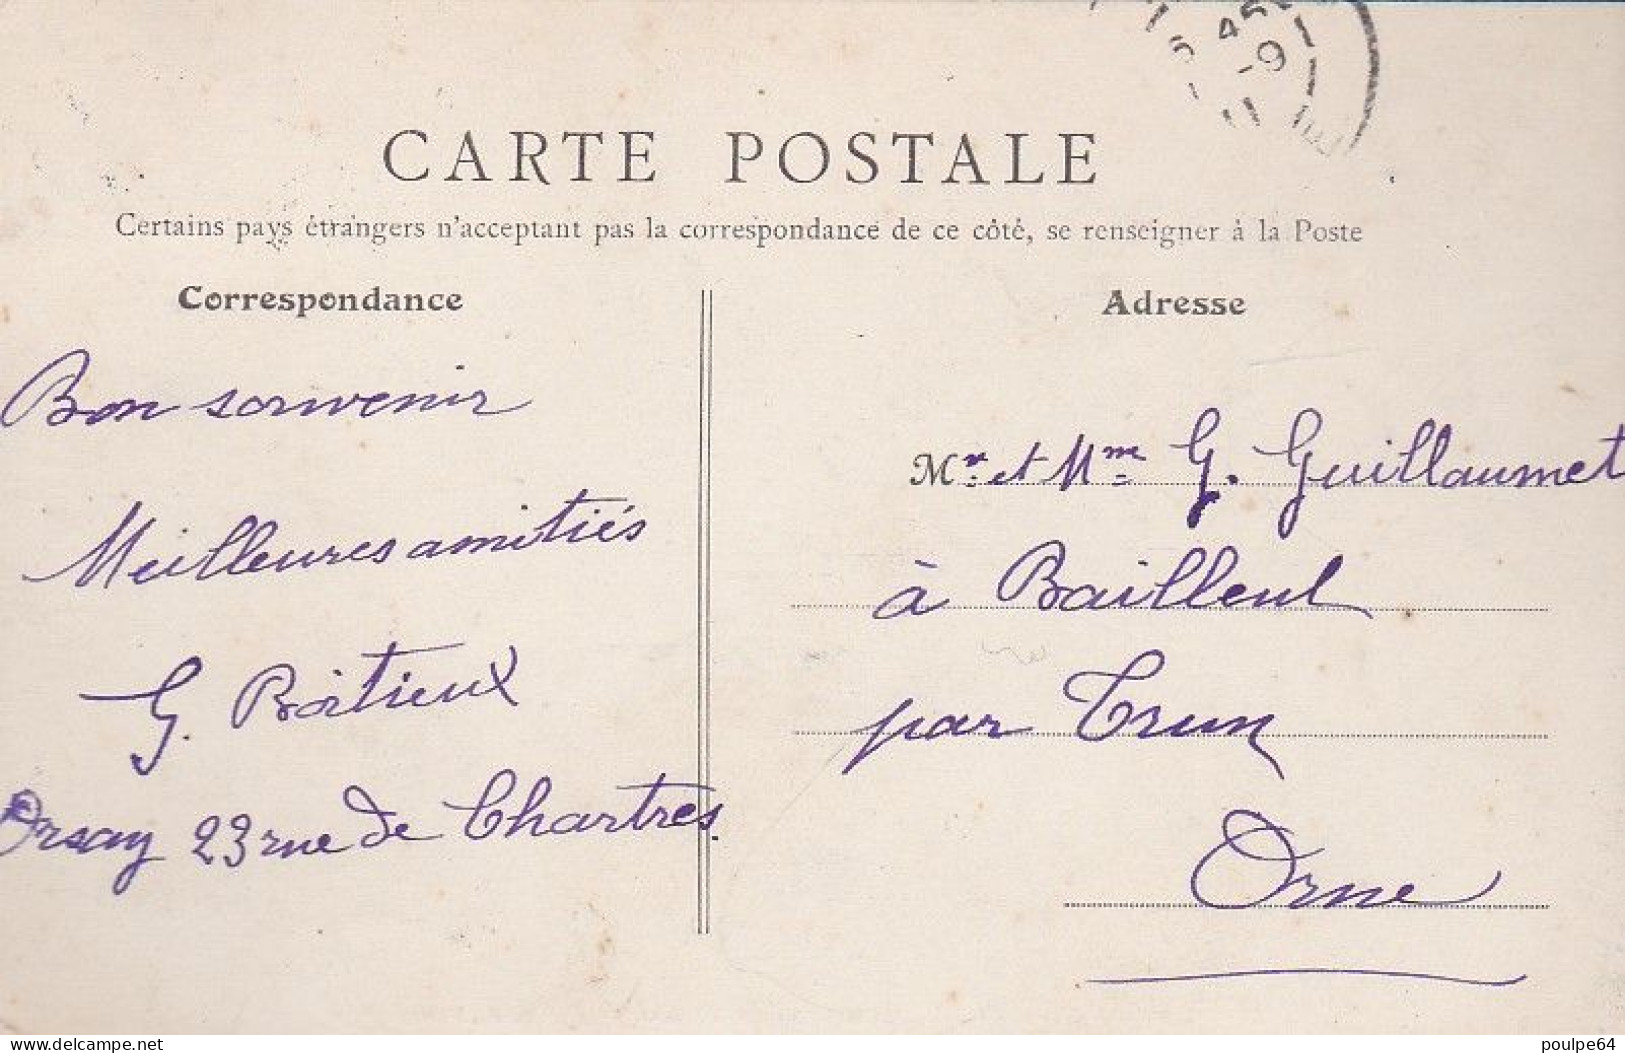 CARTE POSTALE
Certains pays étrangers n'acceptant pas la correspondance de ce côté, se renseigner à la Poste
Correspondance
Bon souvenir
Meilleures amitiés
G. Boitieux
Orsay 23 rue de Chartres.
Adresse
Mr et Mme G. Guillaumet
à Bailleul
par Trun
Orne
delcampe.net
poulpe64